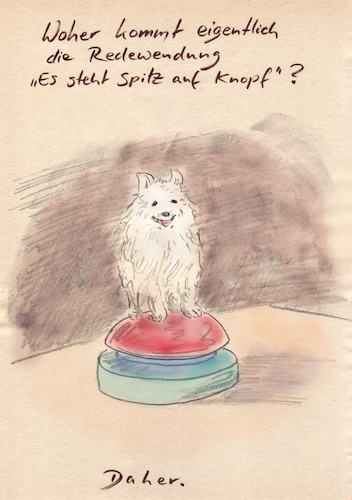 Woher kommt eigentlich
die Redewendung
„Es steht Spitz auf Knopf"?
Daher.